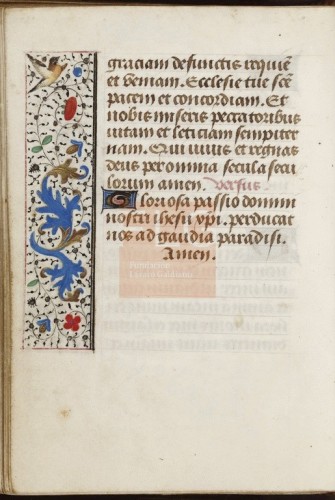 graciam defunctis requiē
et veniam. Ecclesie tue scē
pacem et concordiam. Et
nobis miseris peccatoribus
vitam et leticiam sempiter
nam. Qui vivis et regnas
deus per omnia secula secu
lorum amen. Versus
Gloriosa passio domini
nostri ihesu xpi. perducat
nos ad gaudia paradisi.
Amen.